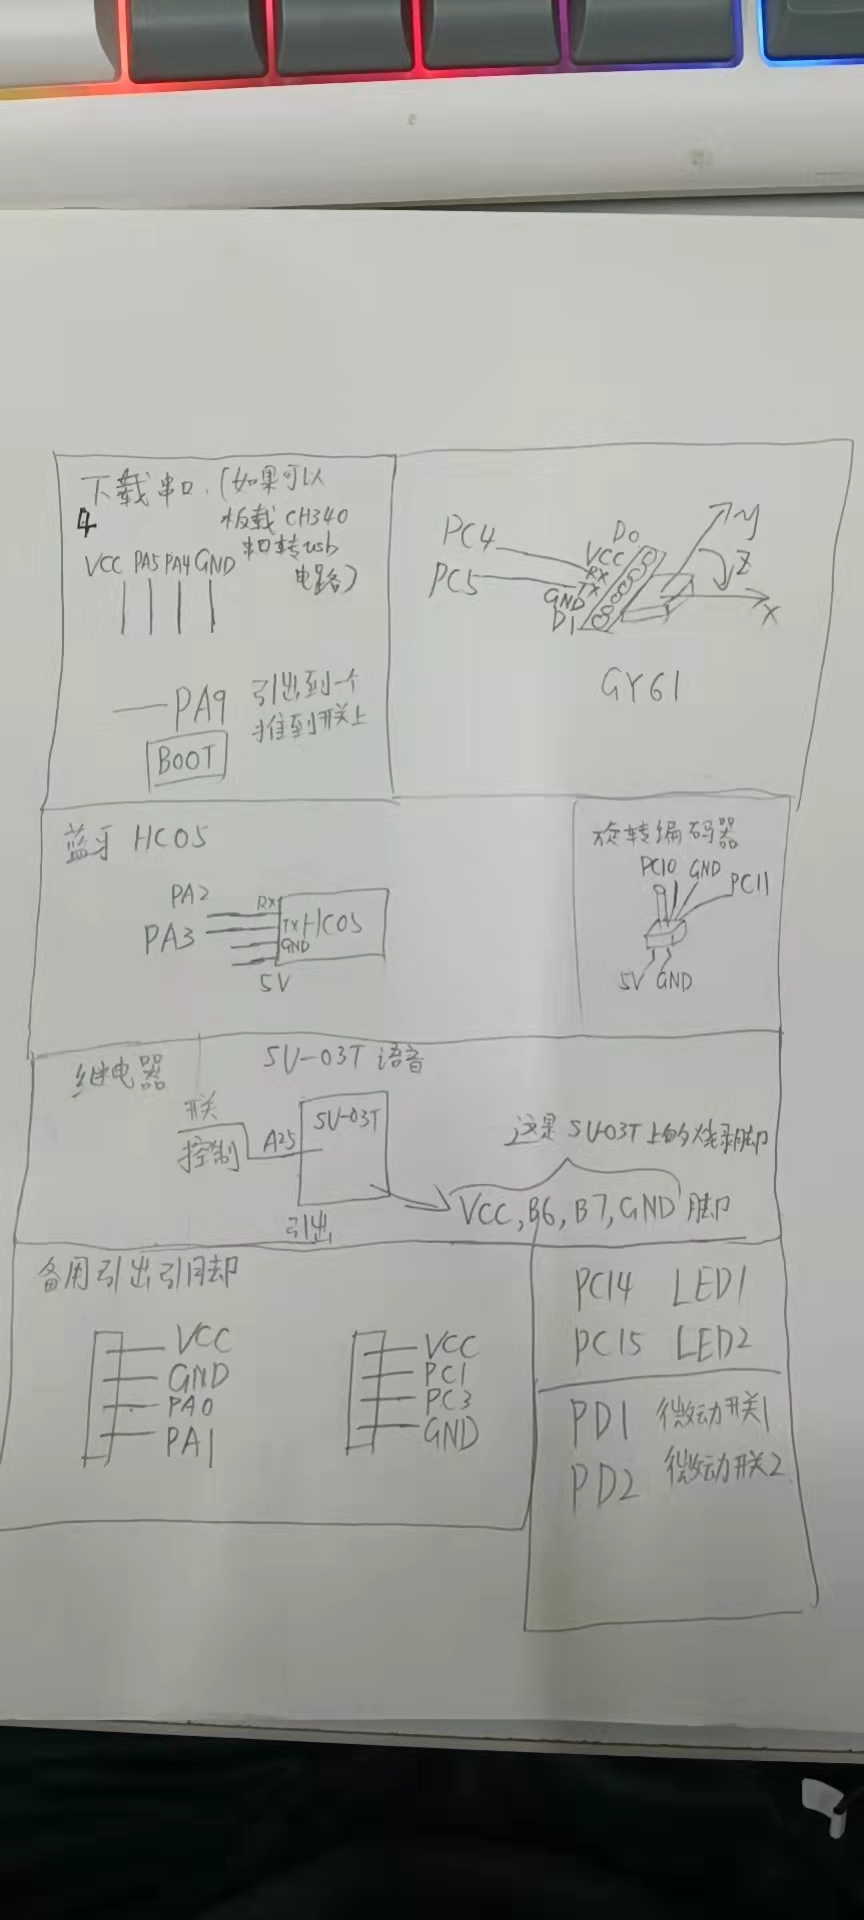 下载串口.(如果可以
板载 CH340
串口转usb
电路)
4
VCC PA5 PA4 GND
PA9 引出到一个
推到开关上
BOOT
PC4
PC5
D0
VCC
RX
TX
GND
D1
y
Z
X
GY61
蓝牙 HC05
PA2
PA3
RX
TX
GND
HC05
5V
旋转编码器
PC10 GND PC11
5V GND
继电器
SU-03T 语音
开关
控制
A25
SU-03T
引出
这是 SU-03T上的烧录脚
VCC,B6,B7,GND 脚
备用引出引脚
VCC
GND
PA0
PA1
VCC
PC1
PC3
GND
PC14 LED1
PC15 LED2
PD1 微动开关1
PD2 微动开关2